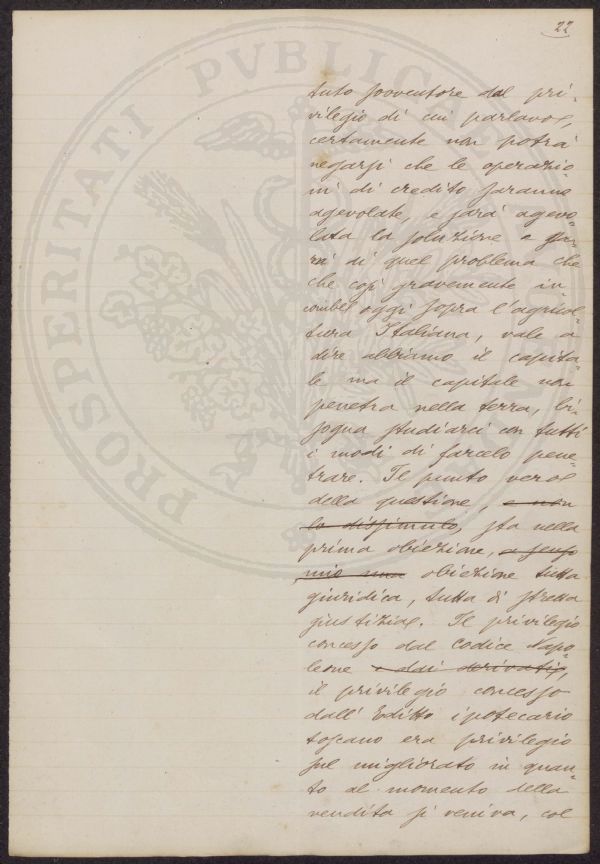 22
PROSPERITATI PVBLICAE AVGENDAE
tuto sovventore dal pri-
vilegio di cui parlavo,
certamente non potrà
negarsi che le operazio
ni di credito saranno
agevolate, e sarà agevo
lata la soluzione a
di quel problema che
che così gravemente in-
combe oggi sopra l'agricol
tura Italiana, vale a
dire abbiamo il capita
le ma il capitale non
penetra nella terra, bi-
sogna studiarci con tutti
i modi di farcelo pene
trare. Il punto vero
della questione, e non
lo dissimulo, sta nella
prima obiezione, a senso
mio una obiezione tutta
giuridica, tutta di stretta
giustizia. Il privilegio
concesso dal Codice Napo
leone e dai derivati,
il privilegio concesso
dall' Editto ipotecario
toscano era privilegio
sul migliorato in quan
to al momento della
vendita si veniva, col